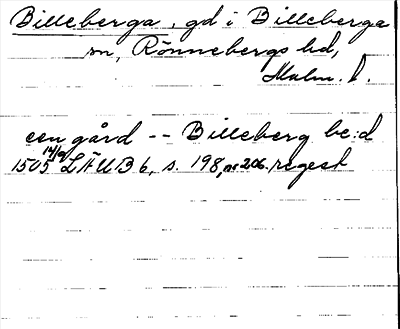 Billeberga, gd i Billeberga
sn, Rönnebergs hd,
Malm. l.
een gård -- Billeberg be:d
1505 14/9 LÄUB 6, s. 198, nr 206. regest